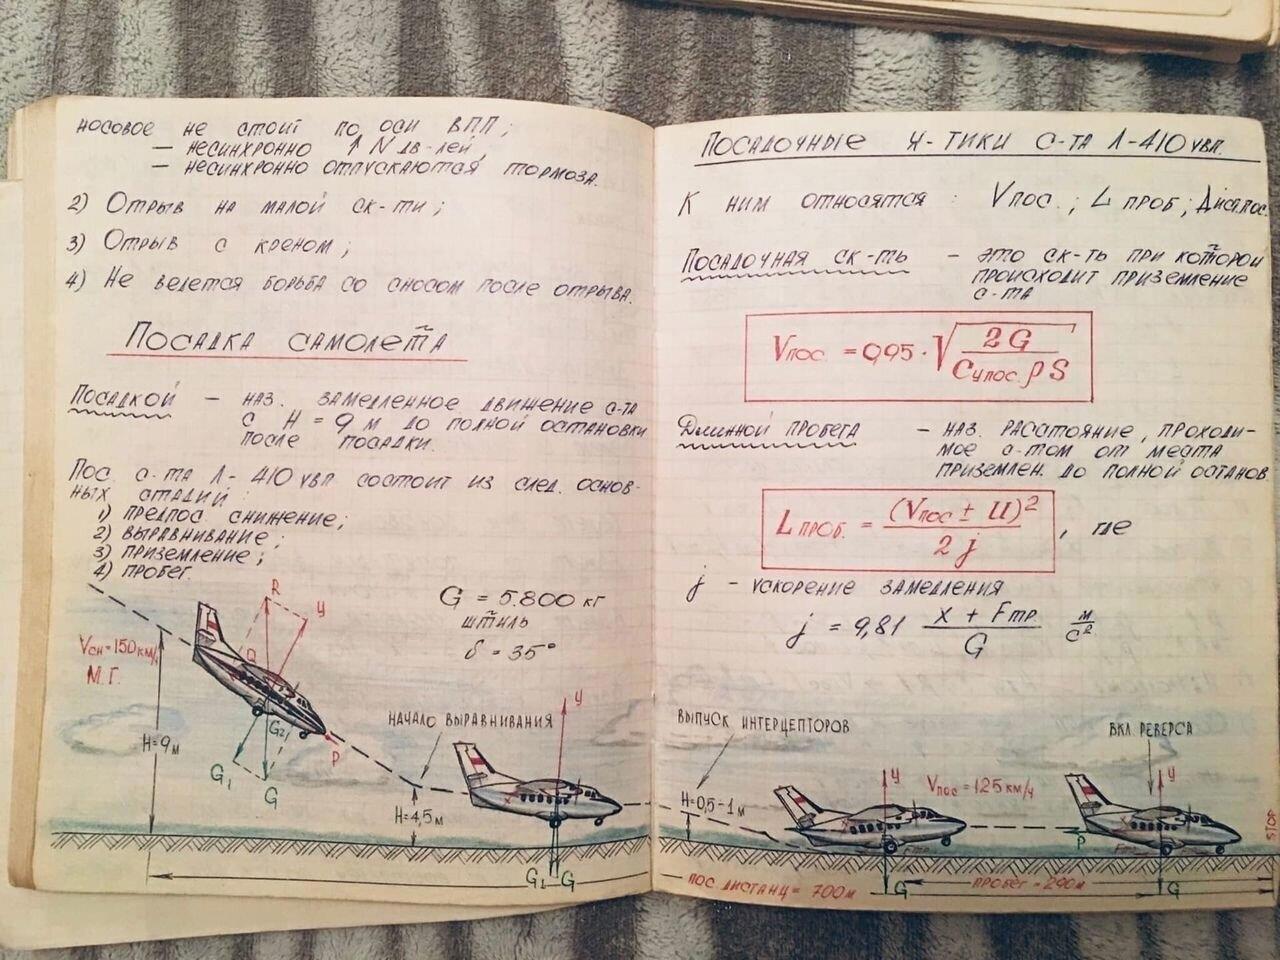 носовое не стоит по оси ВПП;
— несинхронно ↑ N дв-лей,
— несинхронно отпускаются тормоза.
2) Отрыв на малой ск-ти;
3) Отрыв с креном;
4) Не ведется борьба со сносом после отрыва.
Посадка самолета
Посадкой — наз. замедленное движение с-та
с H = 9 м до полной остановки
после посадки.
Пос. с-та Л-410 увп состоит из след. основ-
ных стадий:
1) предпос. снижение;
2) выравнивание;
3) приземление;
4) пробег.
G = 5.800 кг
штиль
δ = 35°
Vсн = 150 км/ч
М.Г.
R
У
Q
G2
P
G1
G
H = 9 м
начало выравнивания
H = 4,5 м
У
G1 G
Посадочные х-тики с-та Л-410 увп.
К ним относятся: Vпос.; L проб; Дист.пос.
Посадочная ск-ть — это ск-ть при которой
происходит приземление
с-та
Vпос. = 0,95 · √ 2G / Супос. ρ S
Длинной пробега — наз. расстояние, проходи-
мое с-том от места
приземлен. до полной останов.
L проб. = (Vпос ± U)² / 2 j , где
j — ускорение замедления
j = 9,81 X + Fтр / G м/с²
выпуск интерцепторов
вкл реверса
H = 0,5-1 м
У
Vпос = 125 км/ч
У
X
P
X
Fтр
Fтр
STOP
пос дистанц = 700 м
G
пробег = 290 м
G